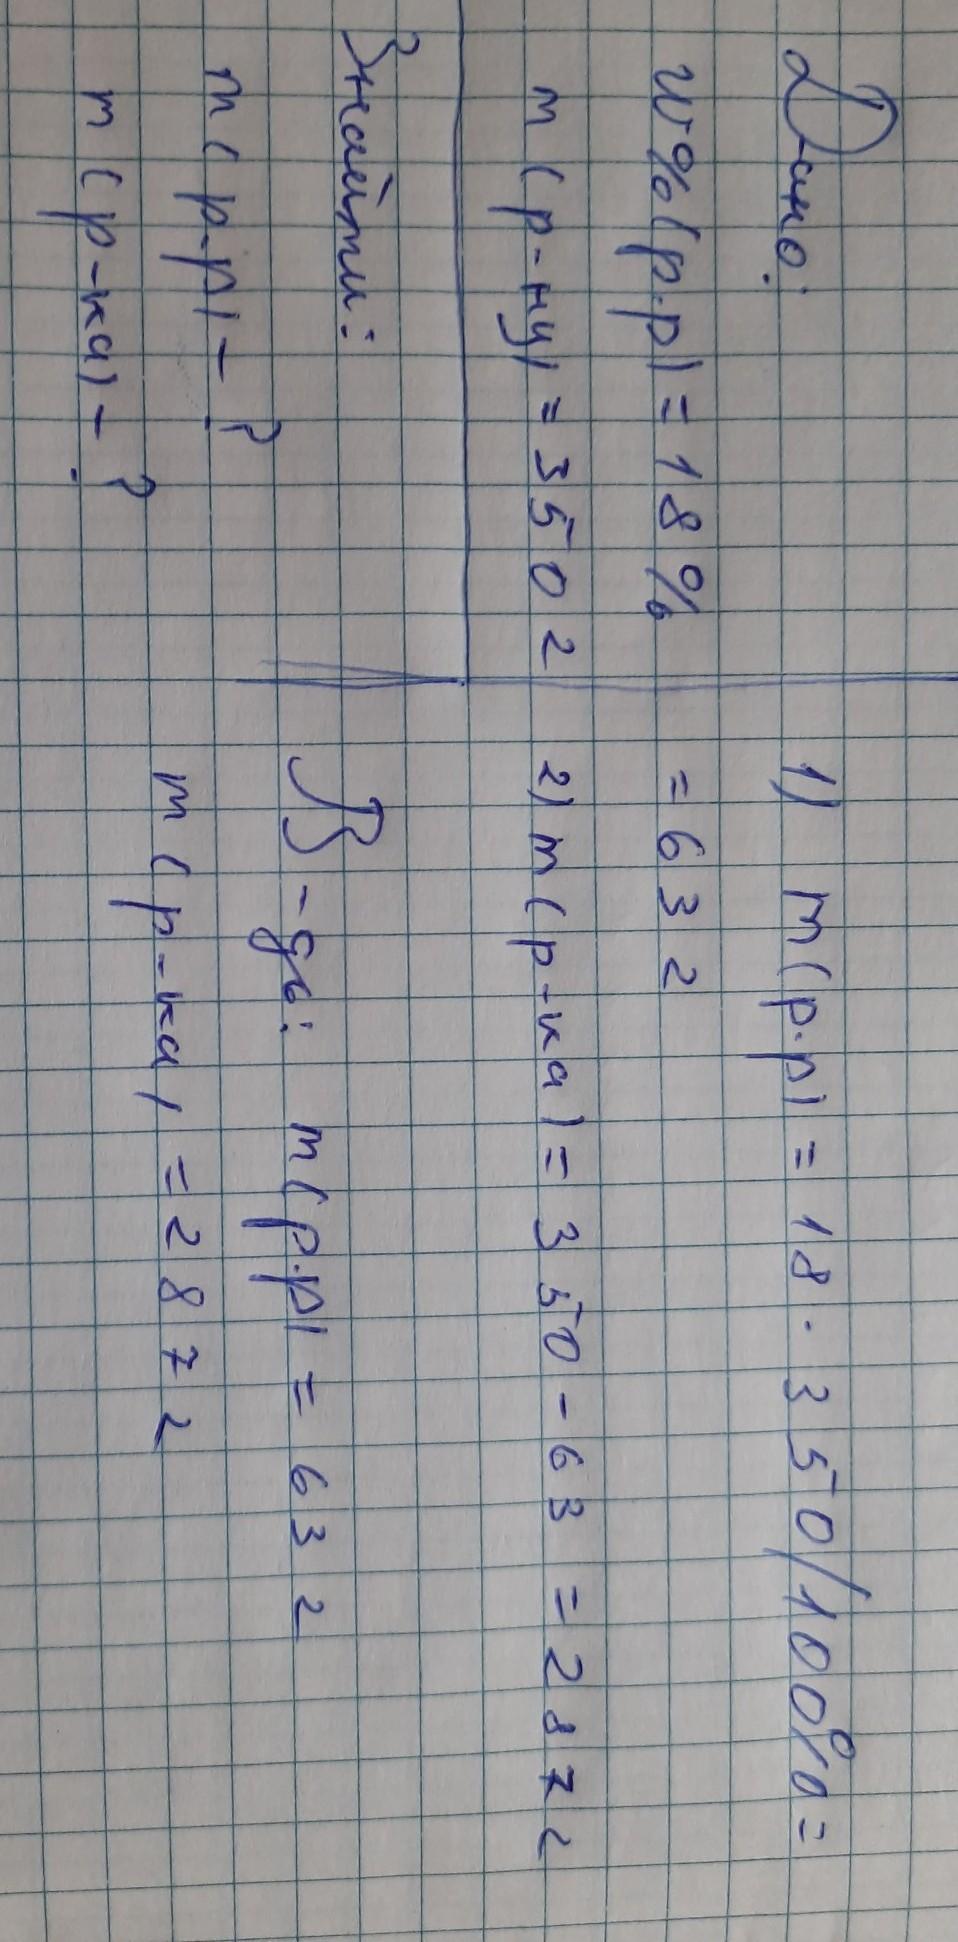 Дано:
W%(р.р) = 18%
m(р-ну) = 350г
Знайти:
m(р.р) - ?
m(р-ка) - ?
1) m(р.р) = 18 · 350/100% =
= 63г
2) m(р-ка) = 350 - 63 = 287г
В-дь: m(р.р) = 63г
m(р-ка) = 287г